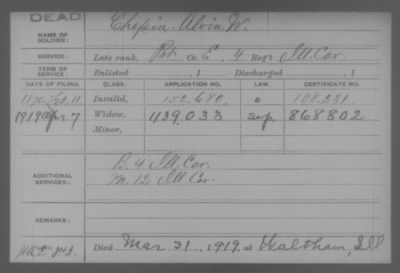 DEAD
NAME OF SOLDIER: Chopin Alvin W.
SERVICE: Late rank, Pvt Co. E, 4 Reg't Ill. Cav.
TERM OF SERVICE: Enlisted , 1 Discharged , 1
DATE OF FILING. CLASS. APPLICATION NO. LAW. CERTIFICATE NO.
Feb. 11. Invalid, 152,680. 108,231.
1919 Apr 7 Widow, 1139,033 868802
Minor,
ADDITIONAL SERVICES: B. 4 Ill. Cav.
M. 12 Ill Cav.
REMARKS:
Died Mar 31, 1919, at Waltham, Ill